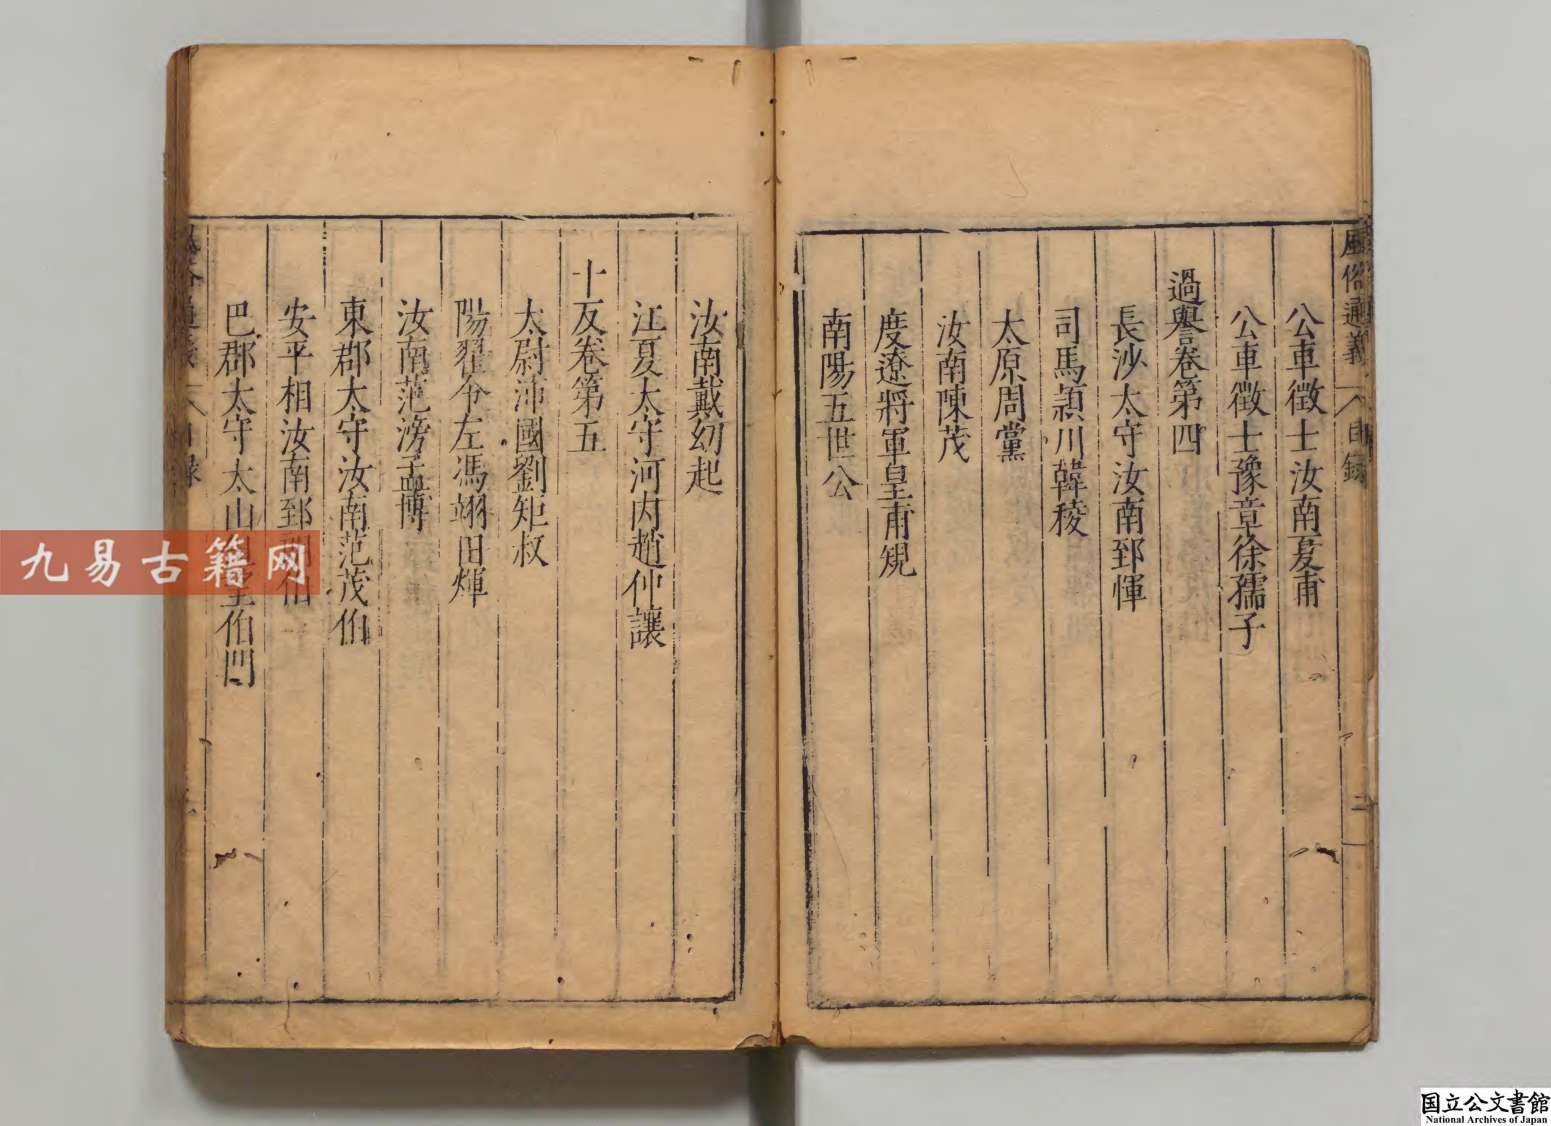 風俗通義 目録 二
公車徵士汝南夏甫
公車徵士豫章徐孺子
過譽卷第四
長沙太守汝南郅惲
司馬潁川韓稜
太原周黨
汝南陳茂
度遼將軍皇甫規
南陽五世公
汝南戴幼起
江夏太守河內趙仲讓
十反卷第五
太尉沛國劉矩叔
陽翟令左馮翊田煇
汝南范滂孟博
東郡太守汝南范茂伯
安平相汝南郅伯
巴郡太守太山伯門
目録
九易古籍网
国立公文書館
National Archives of Japan